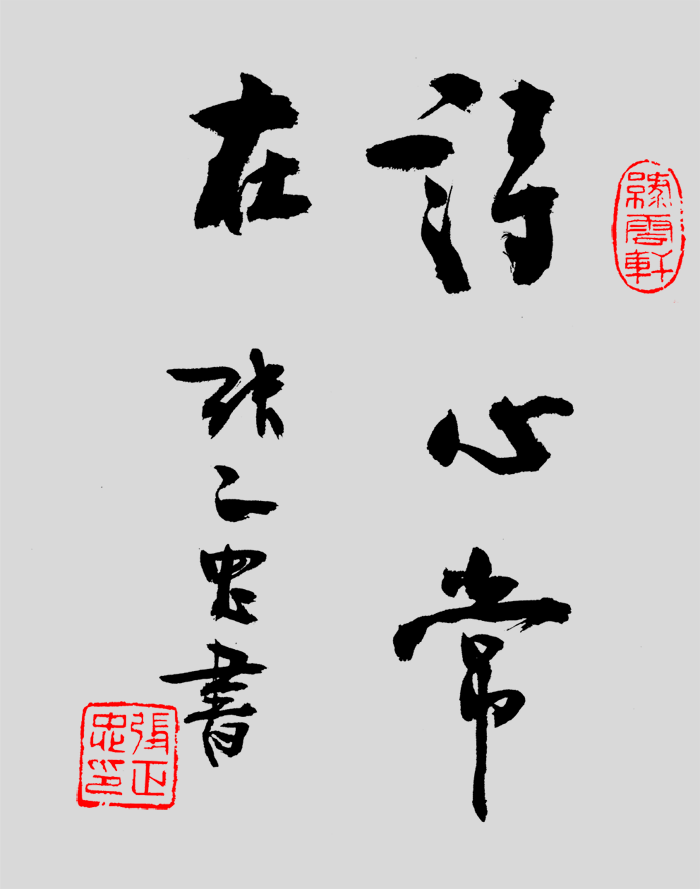 雲軒
詩心常
在 張正忠書
張正
忠印